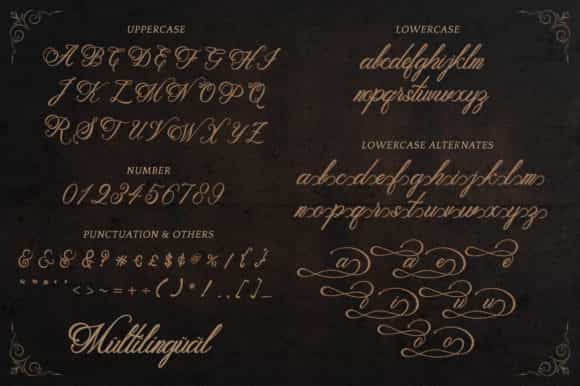 UPPERCASE
A B C D E F G H I
J K L M N O P Q
R S T U V W X Y Z
NUMBER
0 1 2 3 4 5 6 7 8 9
PUNCTUATION & OTHERS
< > ~ = + ÷ ( ) * / . , [ ] _
Multilingual
LOWERCASE
abcdefghijklm
nopqrstuvwxyz
LOWERCASE ALTERNATES
a b c d e f g h i j k l m
n o p q r s t u v w x y z